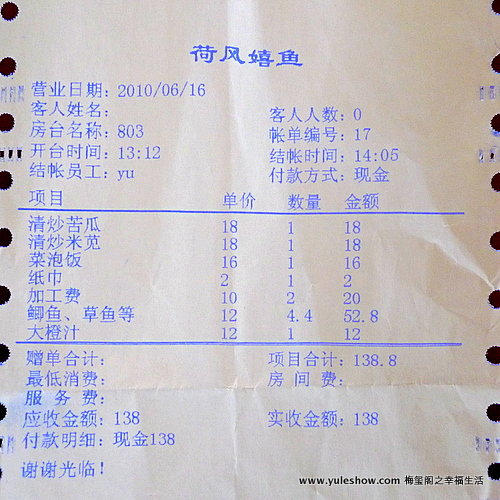 荷风嬉鱼
营业日期: 2010/06/16
客人姓名:
客人人数: 0
房台名称: 803
帐单编号: 17
开台时间: 13:12
结帐时间: 14:05
结帐员工: yu
付款方式: 现金
项目 单价 数量 金额
清炒苦瓜 18 1 18
清炒米苋 18 1 18
菜泡饭 16 1 16
纸巾 2 1 2
加工费 10 2 20
鲫鱼、草鱼等 12 4.4 52.8
大橙汁 12 1 12
赠单合计:
项目合计: 138.8
最低消费:
房 间 费:
服 务 费:
应收金额: 138
实收金额: 138
付款明细: 现金138
谢谢光临!
www.yuleshow.com 梅玺阁之幸福生活